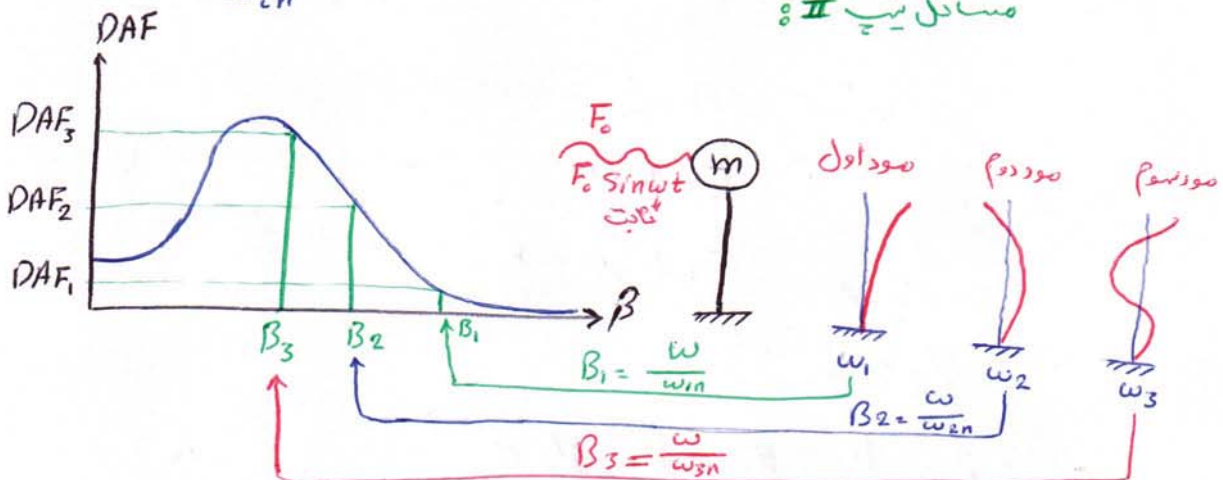 2n
مسائل تیپ II :
DAF
DAF₃
DAF₂
DAF₁
β
B₃
B₂
B₁
F₀
F₀ Sinωt
ثابت
m
مود اول
مود دوم
مود سوم
ω₁
ω₂
ω₃
B₁ = ω/ω₁n
B₂ = ω/ω₂n
B₃ = ω/ω₃n